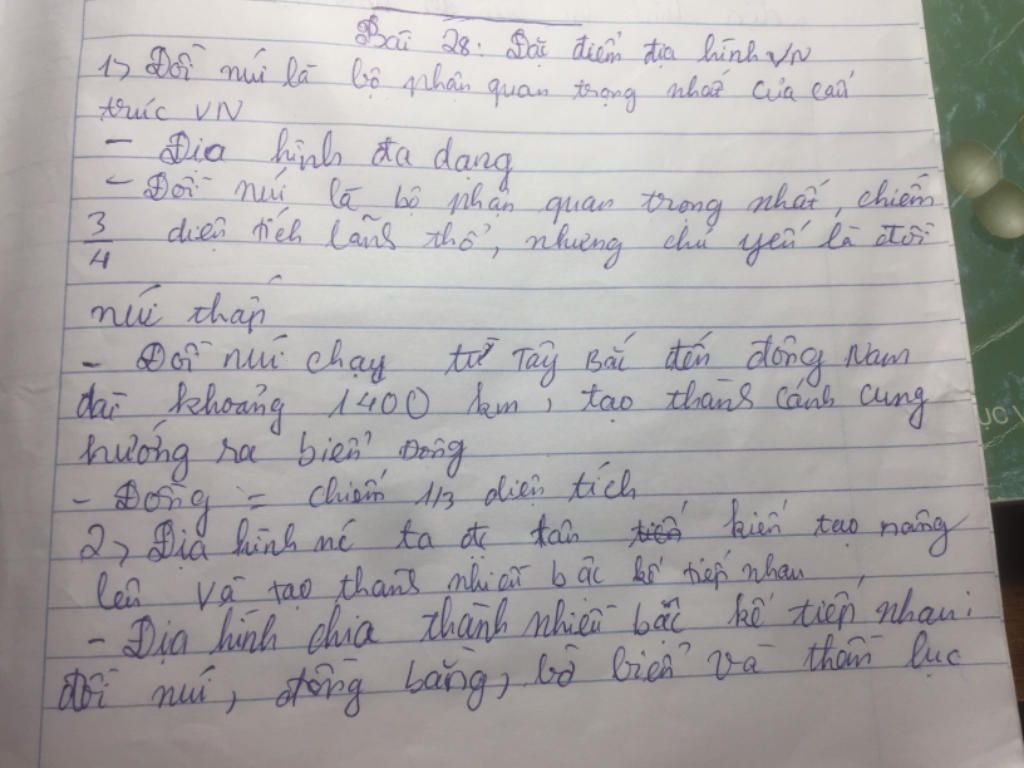 Bài 28: Đặc điểm địa hình VN
1> Đồi núi là bộ phận quan trọng nhất của cấu
trúc VN
- Địa hình đa dạng
- Đồi núi là bộ phận quan trọng nhất, chiếm
3/4 diện tích lãnh thổ, nhưng chủ yếu là đồi
núi thấp
- Đồi núi chạy từ Tây Bắc đến đông Nam
dài khoảng 1400 km, tạo thành cánh cung
hướng ra biển Đông
- Đồng = chiếm 1/3 diện tích
2> Địa hình nc ta đc tân tiến kiến tạo nâng
lên và tạo thành nhiều bậc kế tiếp nhau,
- Địa hình chia thành nhiều bậc kế tiếp nhau:
đồi núi, đồng bằng, bờ biển và thềm lục
ỤC V